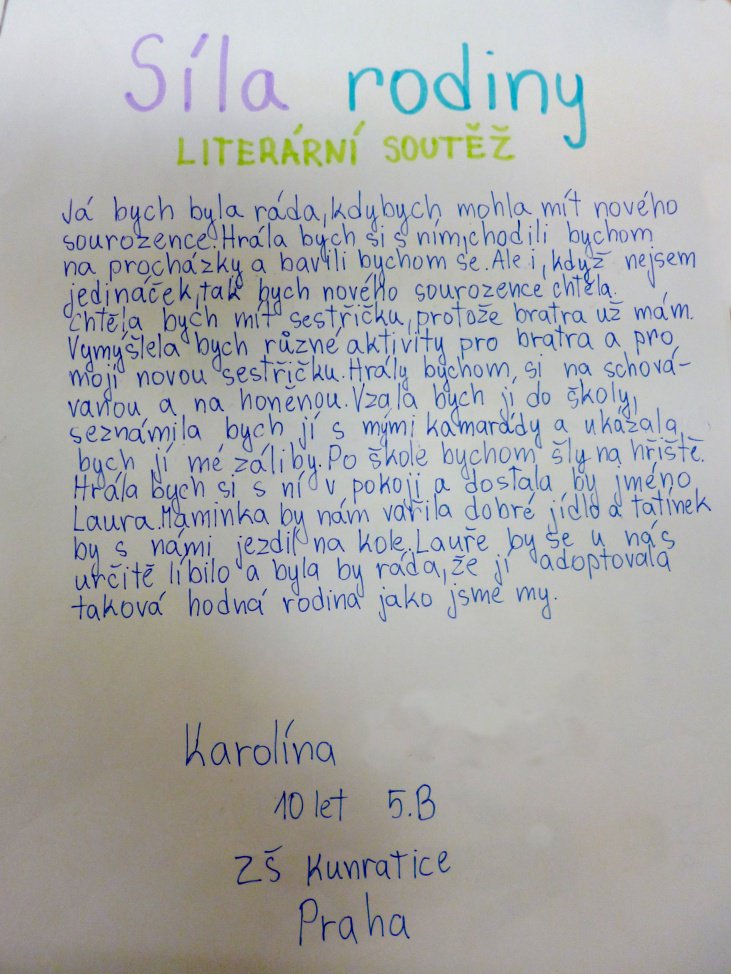 Síla rodiny
LITERÁRNÍ SOUTĚŽ
Já bych byla ráda, kdybych mohla mít nového
sourozence. Hrála bych si s ním, chodili bychom
na procházky a bavili bychom se. Ale i, když nejsem
jedináček, tak bych nového sourozence chtěla.
Chtěla bych mít sestřičku, protože bratra už mám.
Vymýšlela bych různé aktivity pro bratra a pro
moji novou sestřičku. Hrály bychom si na schová-
vanou a na honěnou. Vzala bych ji do školy,
seznámila bych jí s mými kamarády a ukázala
bych jí mé záliby. Po škole bychom šly na hřiště.
Hrála bych si s ní v pokoji a dostala by jméno
Laura. Maminka by nám vařila dobré jídlo a tatínek
by s námi jezdil na kole. Lauře by se u nás
určitě líbilo a byla by ráda, že jí adoptovala
taková hodná rodina jako jsme my.
Karolína
10 let 5.B
ZŠ Kunratice
Praha